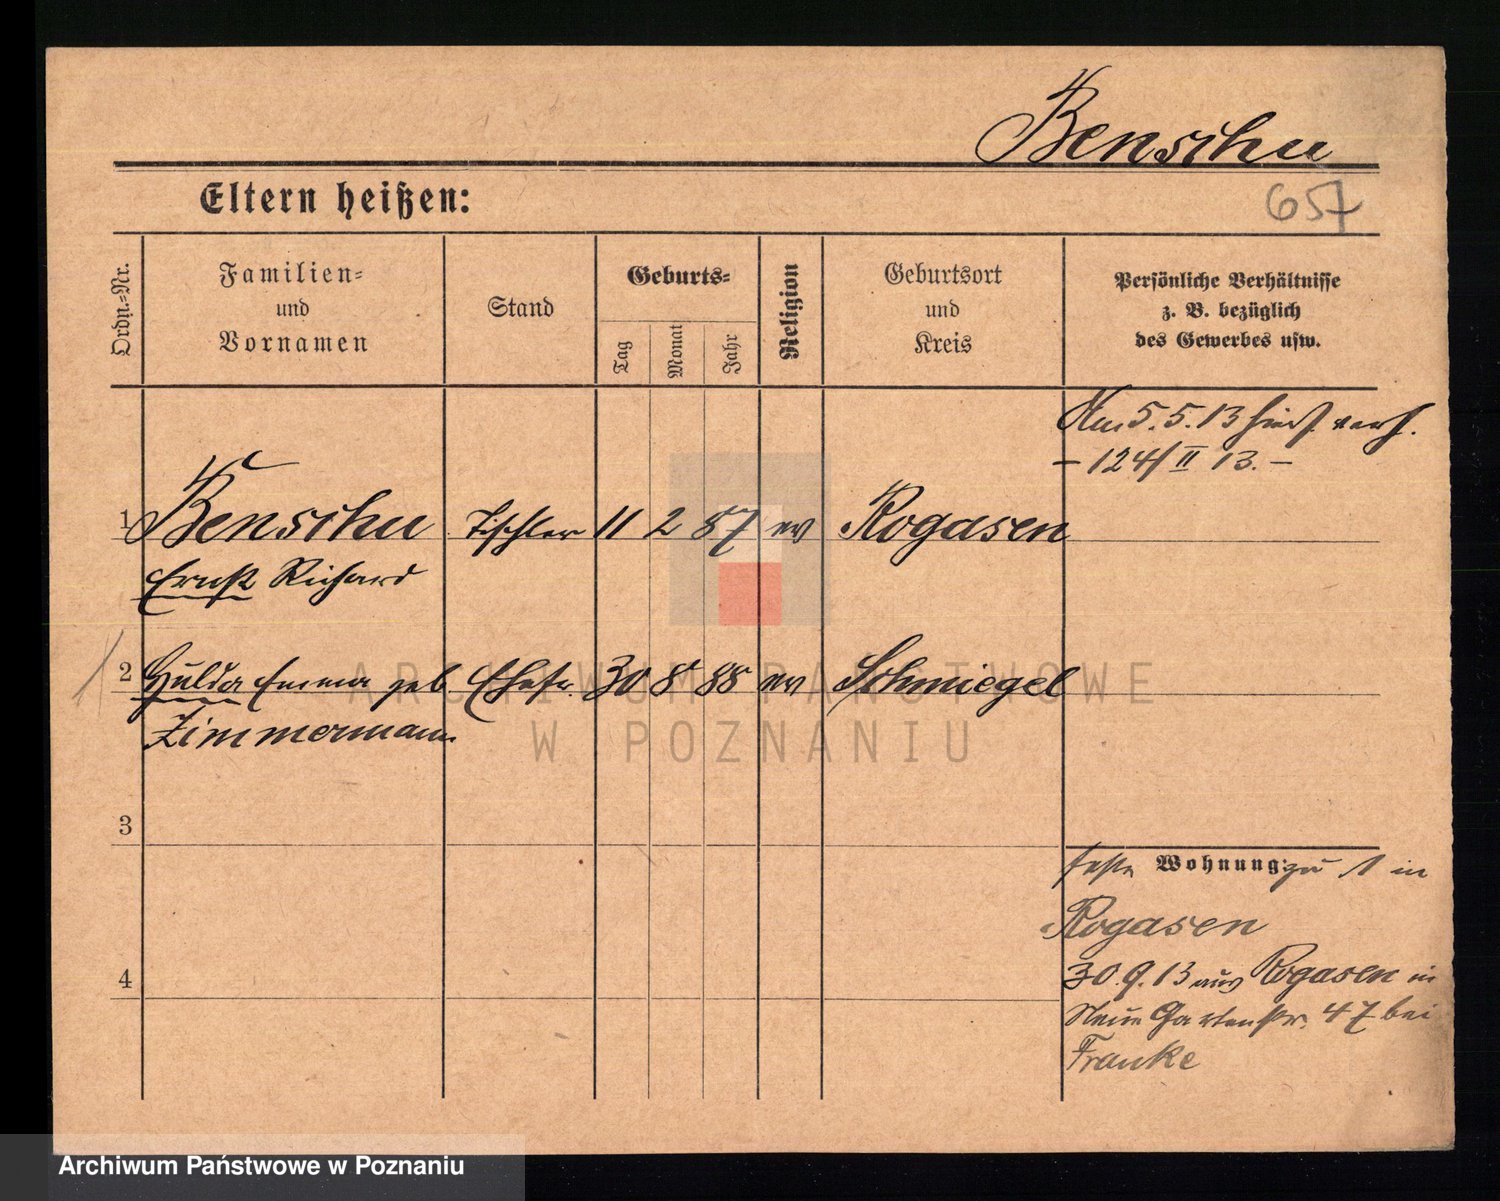 Benschu
657
Eltern heißen:
Ordn.-Nr.
Familien-
und
Vornamen
Stand
Geburts-
Tag
Monat
Jahr
Religion
Geburtsort
und
Kreis
Persönliche Verhältnisse
z. B. bezüglich
des Gewerbes usw.
Am 5.5.13 hier verh.
– 124/II 13. –
1 Benschu Tischler 11 2 87 ev Rogasen
Ernst Richard
2 Hulda Emma geb Ehefr. 30 8 88 ev Schmiegel
Zimmermann
3
feste Wohnung: zu 1 in
Rogasen
4
30.9.13 aus Rogasen in
Neue Gartenstr. 47 bei
Franke
ARCHIWUM PAŃSTWOWE
W POZNANIU
Archiwum Państwowe w Poznaniu